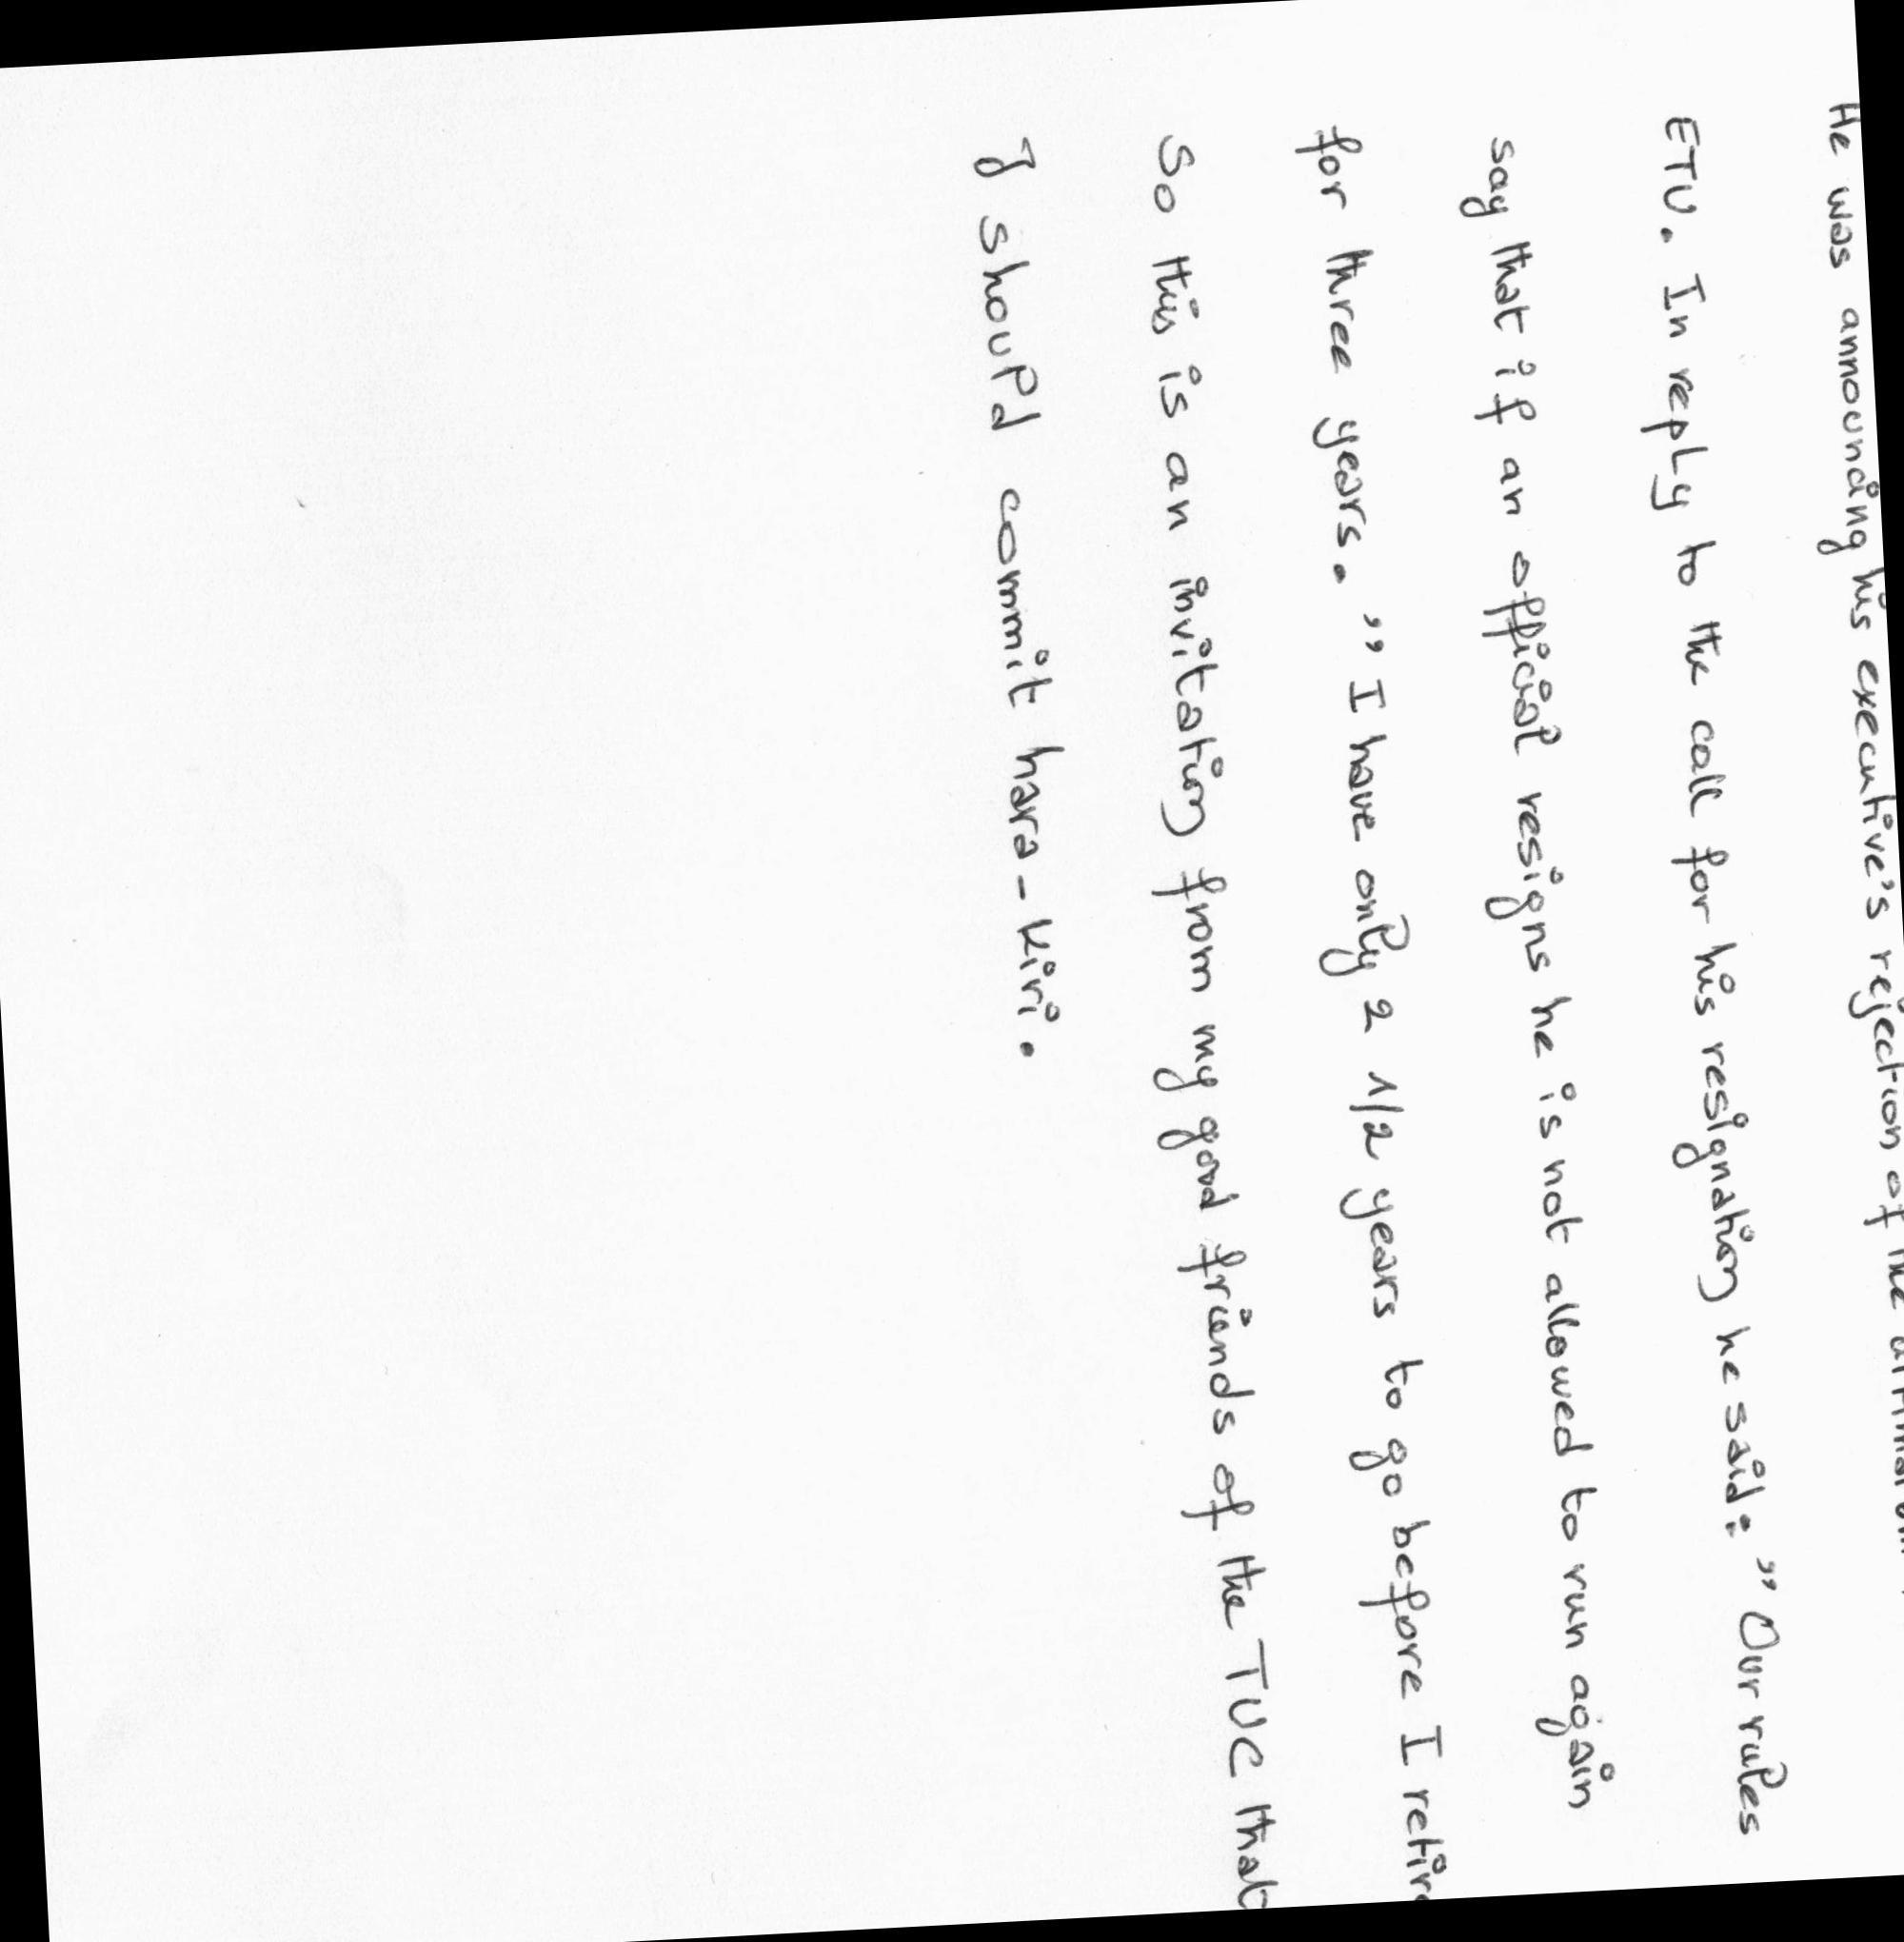 He was announcing his executive's rejection of the
ETU. In reply to the call for his resignation he said: "Our rules
say that if an official resigns he is not allowed to run again
for three years. "I have only 2 1/2 years to go before I retire
So this is an invitation from my good friends of the TUC that
I should commit hara-kiri.